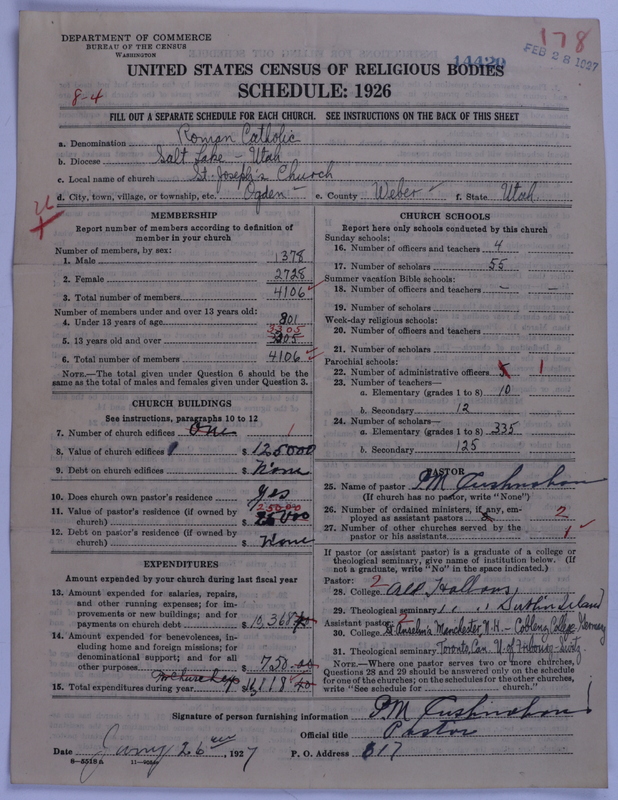 DEPARTMENT OF COMMERCE
BUREAU OF THE CENSUS
WASHINGTON
178
14429
FEB 28 1927
UNITED STATES CENSUS OF RELIGIOUS BODIES
SCHEDULE: 1926
8-4
FILL OUT A SEPARATE SCHEDULE FOR EACH CHURCH. SEE INSTRUCTIONS ON THE BACK OF THIS SHEET
a. Denomination Roman Catholic
b. Diocese Salt Lake - Utah
c. Local name of church St. Joseph's Church
d. City, town, village, or township, etc. Ogden e. County Weber f. State Utah
MEMBERSHIP
Report number of members according to definition of
member in your church
Number of members, by sex:
1. Male 1378
2. Female 2728
3. Total number of members 4106
Number of members under and over 13 years old:
4. Under 13 years of age 801
3305
5. 13 years old and over 3305
6. Total number of members 4106
NOTE.—The total given under Question 6 should be
the same as the total of males and females given under Question 3.
CHURCH BUILDINGS
See instructions, paragraphs 10 to 12
7. Number of church edifices One 1
8. Value of church edifices $ 125000
9. Debt on church edifices $ None
10. Does church own pastor's residence Yes
25000
11. Value of pastor's residence (if owned by
church) $ 25000
12. Debt on pastor's residence (if owned by
church) $ None
EXPENDITURES
Amount expended by your church during last fiscal year
13. Amount expended for salaries, repairs,
and other running expenses; for im-
provements or new buildings; and for
payments on church debt $
14. Amount expended for benevolences, in-
cluding home and foreign missions; for
denominational support; and for all
other purposes $ 750.00
15. Total expenditures during year $
CHURCH SCHOOLS
Report here only schools conducted by this church
Sunday schools:
16. Number of officers and teachers 4
17. Number of scholars 55
Summer vacation Bible schools:
18. Number of officers and teachers - -
19. Number of scholars
Week-day religious schools:
20. Number of officers and teachers
21. Number of scholars
Parochial schools:
22. Number of administrative officers 5 1
23. Number of teachers—
a. Elementary (grades 1 to 8) 10
b. Secondary 12
24. Number of scholars—
a. Elementary (grades 1 to 8) 335
b. Secondary 125
PASTOR
25. Name of pastor P.M. Cushnahan
(If church has no pastor, write "None")
26. Number of ordained ministers, if any, em-
ployed as assistant pastors 2
27. Number of other churches served by the
pastor or his assistants 1
If pastor (or assistant pastor) is a graduate of a college or
theological seminary, give name of institution below. (If
not a graduate, write "No" in the space indicated.)
Pastor: 2
28. College All Hallows
29. Theological seminary " " Dublin Ireland
Assistant pastor: 2
30. College St Anselm's Manchester, N.H. - College Germany
31. Theological seminary Toronto, Can. U. of
NOTE.—Where one pastor serves two or more churches,
Questions 28 and 29 should be answered only on the schedule
for one of the churches; on the schedules for the other churches,
write "See schedule for church."
Signature of person furnishing information P.M. Cushnahan
Official title Pastor
Date Jany 26 1927 P. O. Address 617
8-5518 A